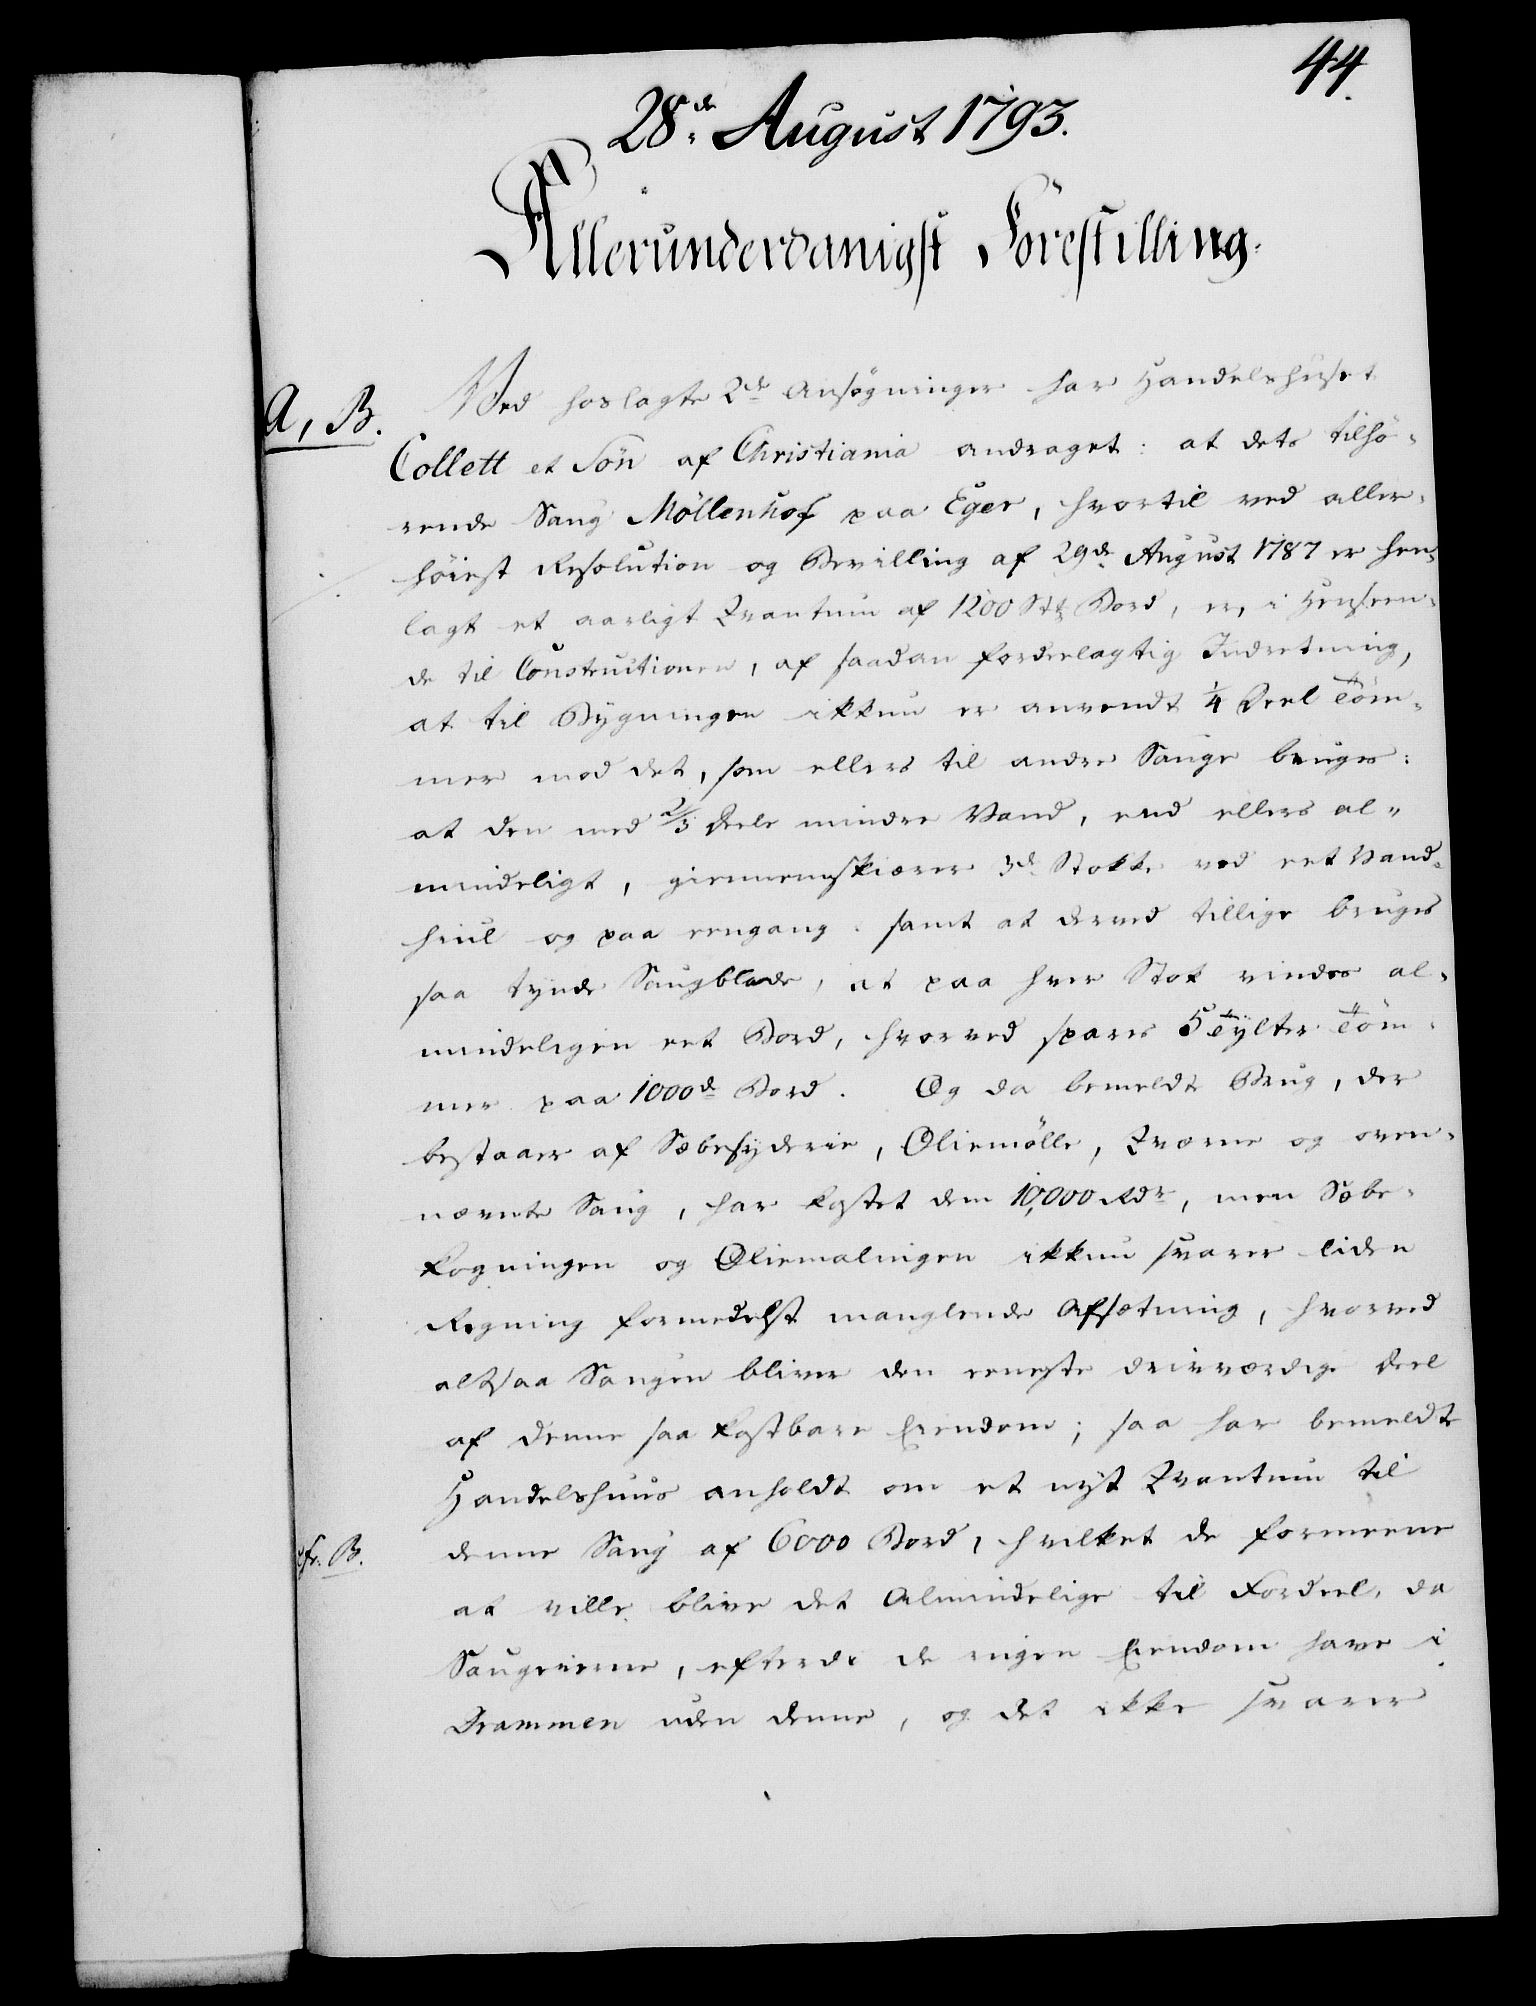 44.
28de August 1793.
Allerunderdanigst Forestilling.
A, B.
Ved hoslagte 2de Ansøgninger har Handelshuset
Collett et Søn af Christiania andraget: at dets tilhø-
rende Saug Möllenhof paa Eger, hvortil ved aller-
høiest Resolution og Bevilling af 29de August 1787 er hen-
lagt et aarligt Qvantum af 1200 Stk Bord, er, i Henseen-
de til Constructionen, af saadan fordeelagtig Indretning,
at til Bygningen ikkun er anvendt 1/4 Deel Töm-
mer mod det, som ellers til andre Sauge bruges:
at den med 2/3 Deele mindre Vand, end ellers al-
mindeligt, giennemskiærer 3de Stokke ved eet Vand-
hiul og paa eengang: samt at derved tillige bruges
saa tynde Saugblade, at paa hver Stok vindes al-
mindeligen eet Bord, hvorved spares 5 Tylter Töm-
mer paa 1000de Bord. Og da bemeldte Brug, der
bestaaer af Sæbesyderie, Oliemölle, Qværne og oven-
nævnte Saug, har kostet dem 10,000 Rdr, men Sæbe-
kogningen og Oliemalingen ikkun svarer liden
Regning formedelst manglende Afsætning, hvorved
altsaa Saugen bliver den eeneste drivværdige Deel
af denne saa kostbare Eiendom; saa har bemeldte
Handelshuus anholdt om et nyt Qvantum til
cfr. B.
denne Saug af 6000 Bord, hvilket de formeene
at ville blive det Almindelige til Fordeel, da
Saugeierne, efterdi de ingen Eiendom have i
Drammen uden denne, og det ikke svarer